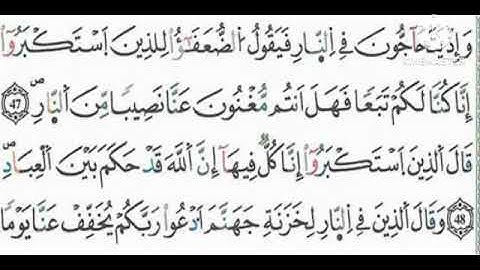 وَإِذْ يَتَحَآجُّونَ فِي اِ۬لنَّارِ فَيَقُولُ اُ۬لضُّعَفَٰٓؤُاْ لِلذِينَ اَ۪سْتَكْبَرُوٓاْ
إِنَّا كُنَّا لَكُمْ تَبَعاٗ فَهَلَ اَنتُم مُّغْنُونَ عَنَّا نَصِيباٗ مِّنَ اَ۬لنّ۪ارِۖ 47
قَالَ اَ۬لذِينَ اَ۪سْتَكْبَرُوٓاْ إِنَّا كُلّٞ فِيهَآ إِنَّ اَ۬للَّهَ قَدْ حَكَمَ بَيْنَ اَ۬لْعِبَادِۖ
48 وَقَالَ اَ۬لذِينَ فِي اِ۬لنّ۪ارِ لِخَزَنَةِ جَهَنَّمَ اَ۟دْعُواْ رَبَّكُمْ يُخَفِّفْ عَنَّا يَوْماٗ